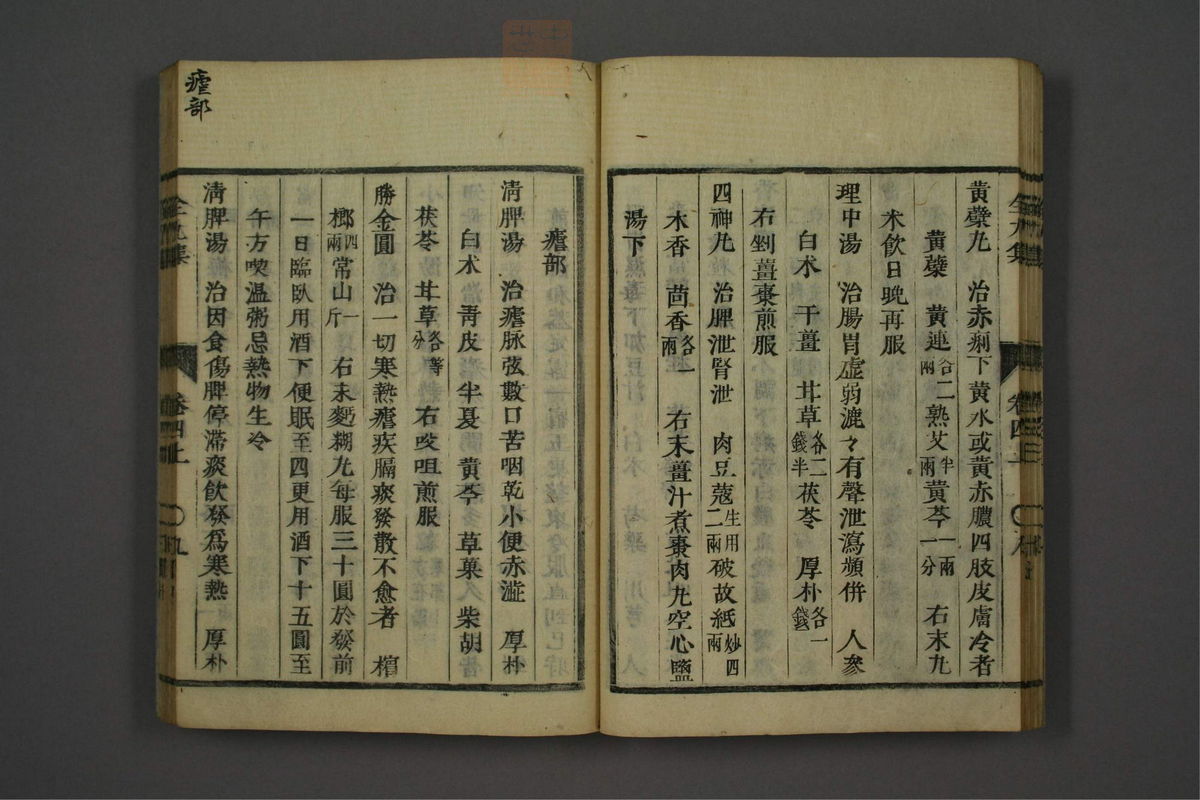 黃蘗丸　治赤痢下黃水或黃赤膿四肢皮膚冷者
黃蘗　黃連各二兩　熟艾半兩　黃芩一兩一分　右末丸
米飲日晚再服
理中湯　治腸胃虛弱漉々有聲泄瀉頻併　人參
白朮　干薑　甘草各二錢半　茯苓　厚朴各一錢
右剉薑棗煎服
四神丸　治脾泄腎泄　肉豆蔻生用二兩　破故紙炒四兩
木香　茴香各一兩　右末薑汁煮棗肉丸空心鹽
湯下
全九集　卷四上　八
瘧部
瘧部
清脾湯　治瘧脉弦數口苦咽乾小便赤澁　厚朴
白朮　靑皮　半夏　黃芩　草菓　柴胡
茯苓　甘草各等分　右㕮咀煎服
勝金圓　治一切寒熱瘧疾膈痰發散不愈者　檳
榔四兩　常山一斤　右末麪糊丸每服三十圓於發前
一日臨臥用酒下便眠至四更用酒下十五圓至
午方喫温粥忌熱物生冷
淸脾湯　治因食傷脾停滯痰飮發爲寒熱　厚朴
全九集　卷四上　九